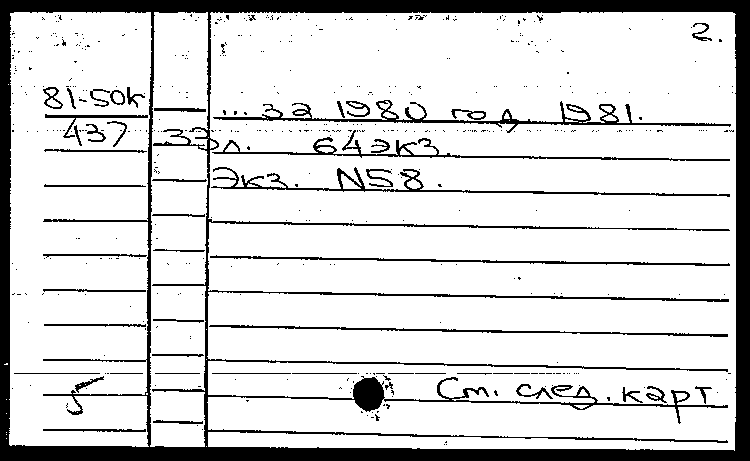 2.
81-50к ... за 1980 год. 1981.
437 33л. 64экз.
Экз. N58.
5 См. след. карт